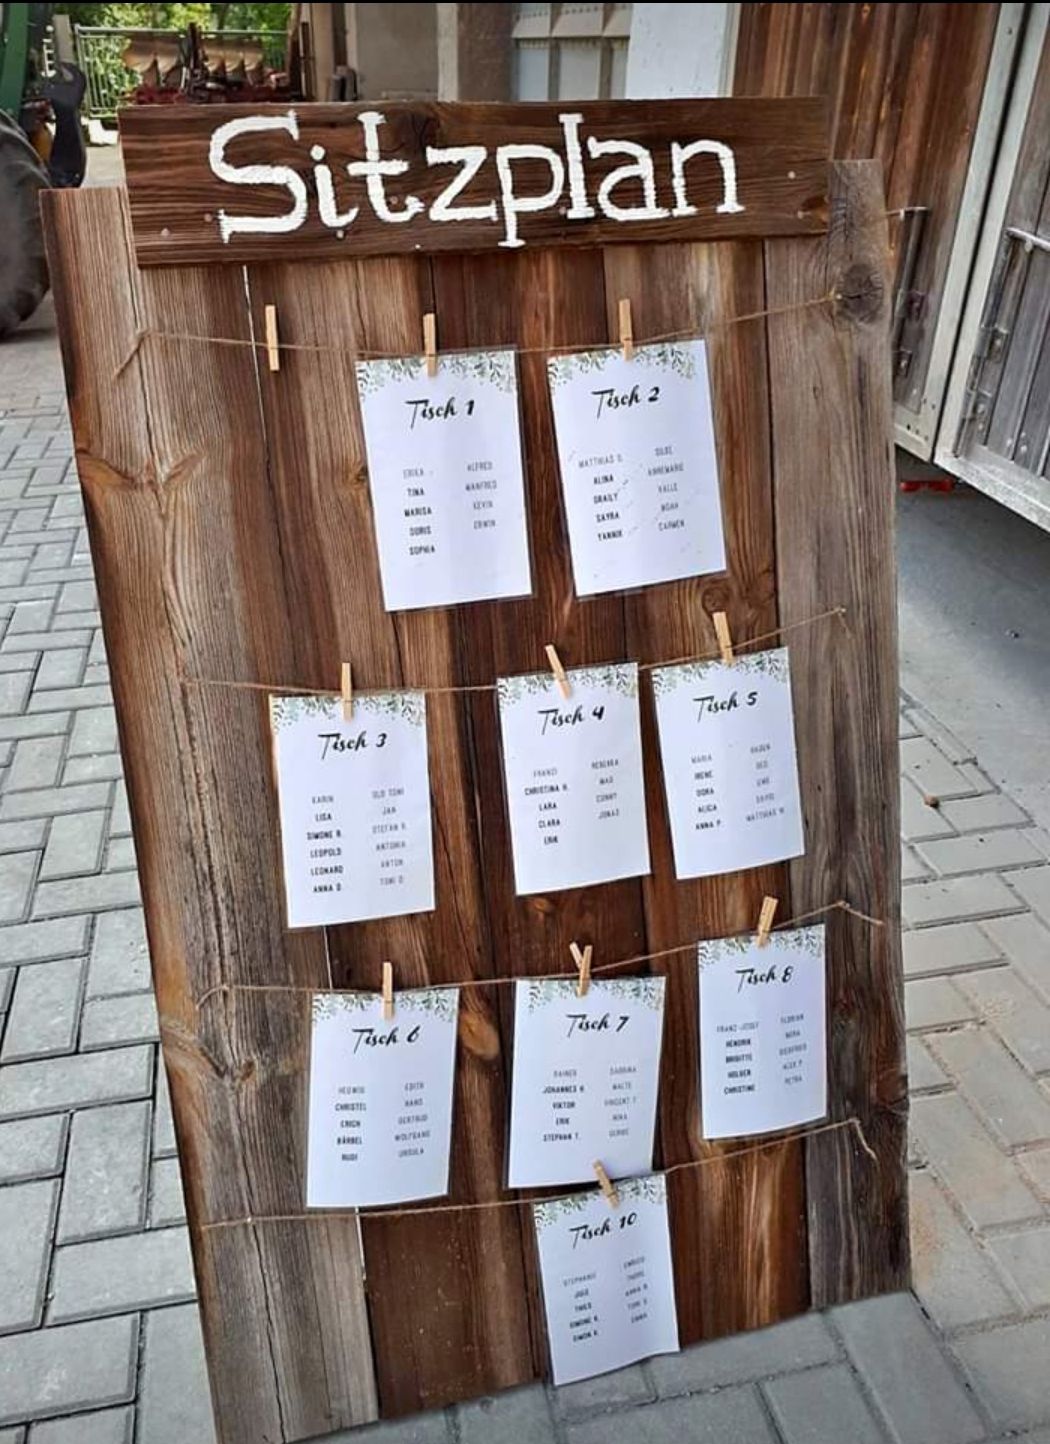 Sitzplan
Tisch 1
ERIKA ALFRED
TINA MANFRED
MARISA KEVIN
DORIS ERWIN
SOPHIA
Tisch 2
MATTHIAS D. SILKE
ALINA ANNEMARIE
GRAILY KALLE
SAYRA NOAH
YANNIK CARMEN
Tisch 3
KARIN OLD TONI
LISA JAN
SIMONE R. STEFAN R.
LEOPOLD ANTONIA
LEONARD ANTON
ANNA D. TONI D.
Tisch 4
FRANZI REBEKKA
CHRISTINA H. MAX
LARA CONNY
CLARA JONAS
ERIK
Tisch 5
MARIA
IRENE
DORA UWE
ALICIA DAVID
ANNA P. MATTHIAS W.
Tisch 6
HEDWIG EDITH
CHRISTEL HANS
ERICH GERTRUD
BÄRBEL WOLFGANG
RUDI URSULA
Tisch 7
RAINER SABRINA
JOHANNES MALTE
VIKTOR VINCENT T.
ERIK NINA
STEPHAN T. ULRIKE
Tisch 8
FRANZ-JOSEF FLORIAN
HENDRIK NORA
BRIGITTE SIEGFRIED
HOLGER ALEX P.
CHRISTINE PETRA
Tisch 10
STEPHANIE ENRICO
JULE
THIES ANNA
SIMONE K. TOM
SIMON K. EMMA